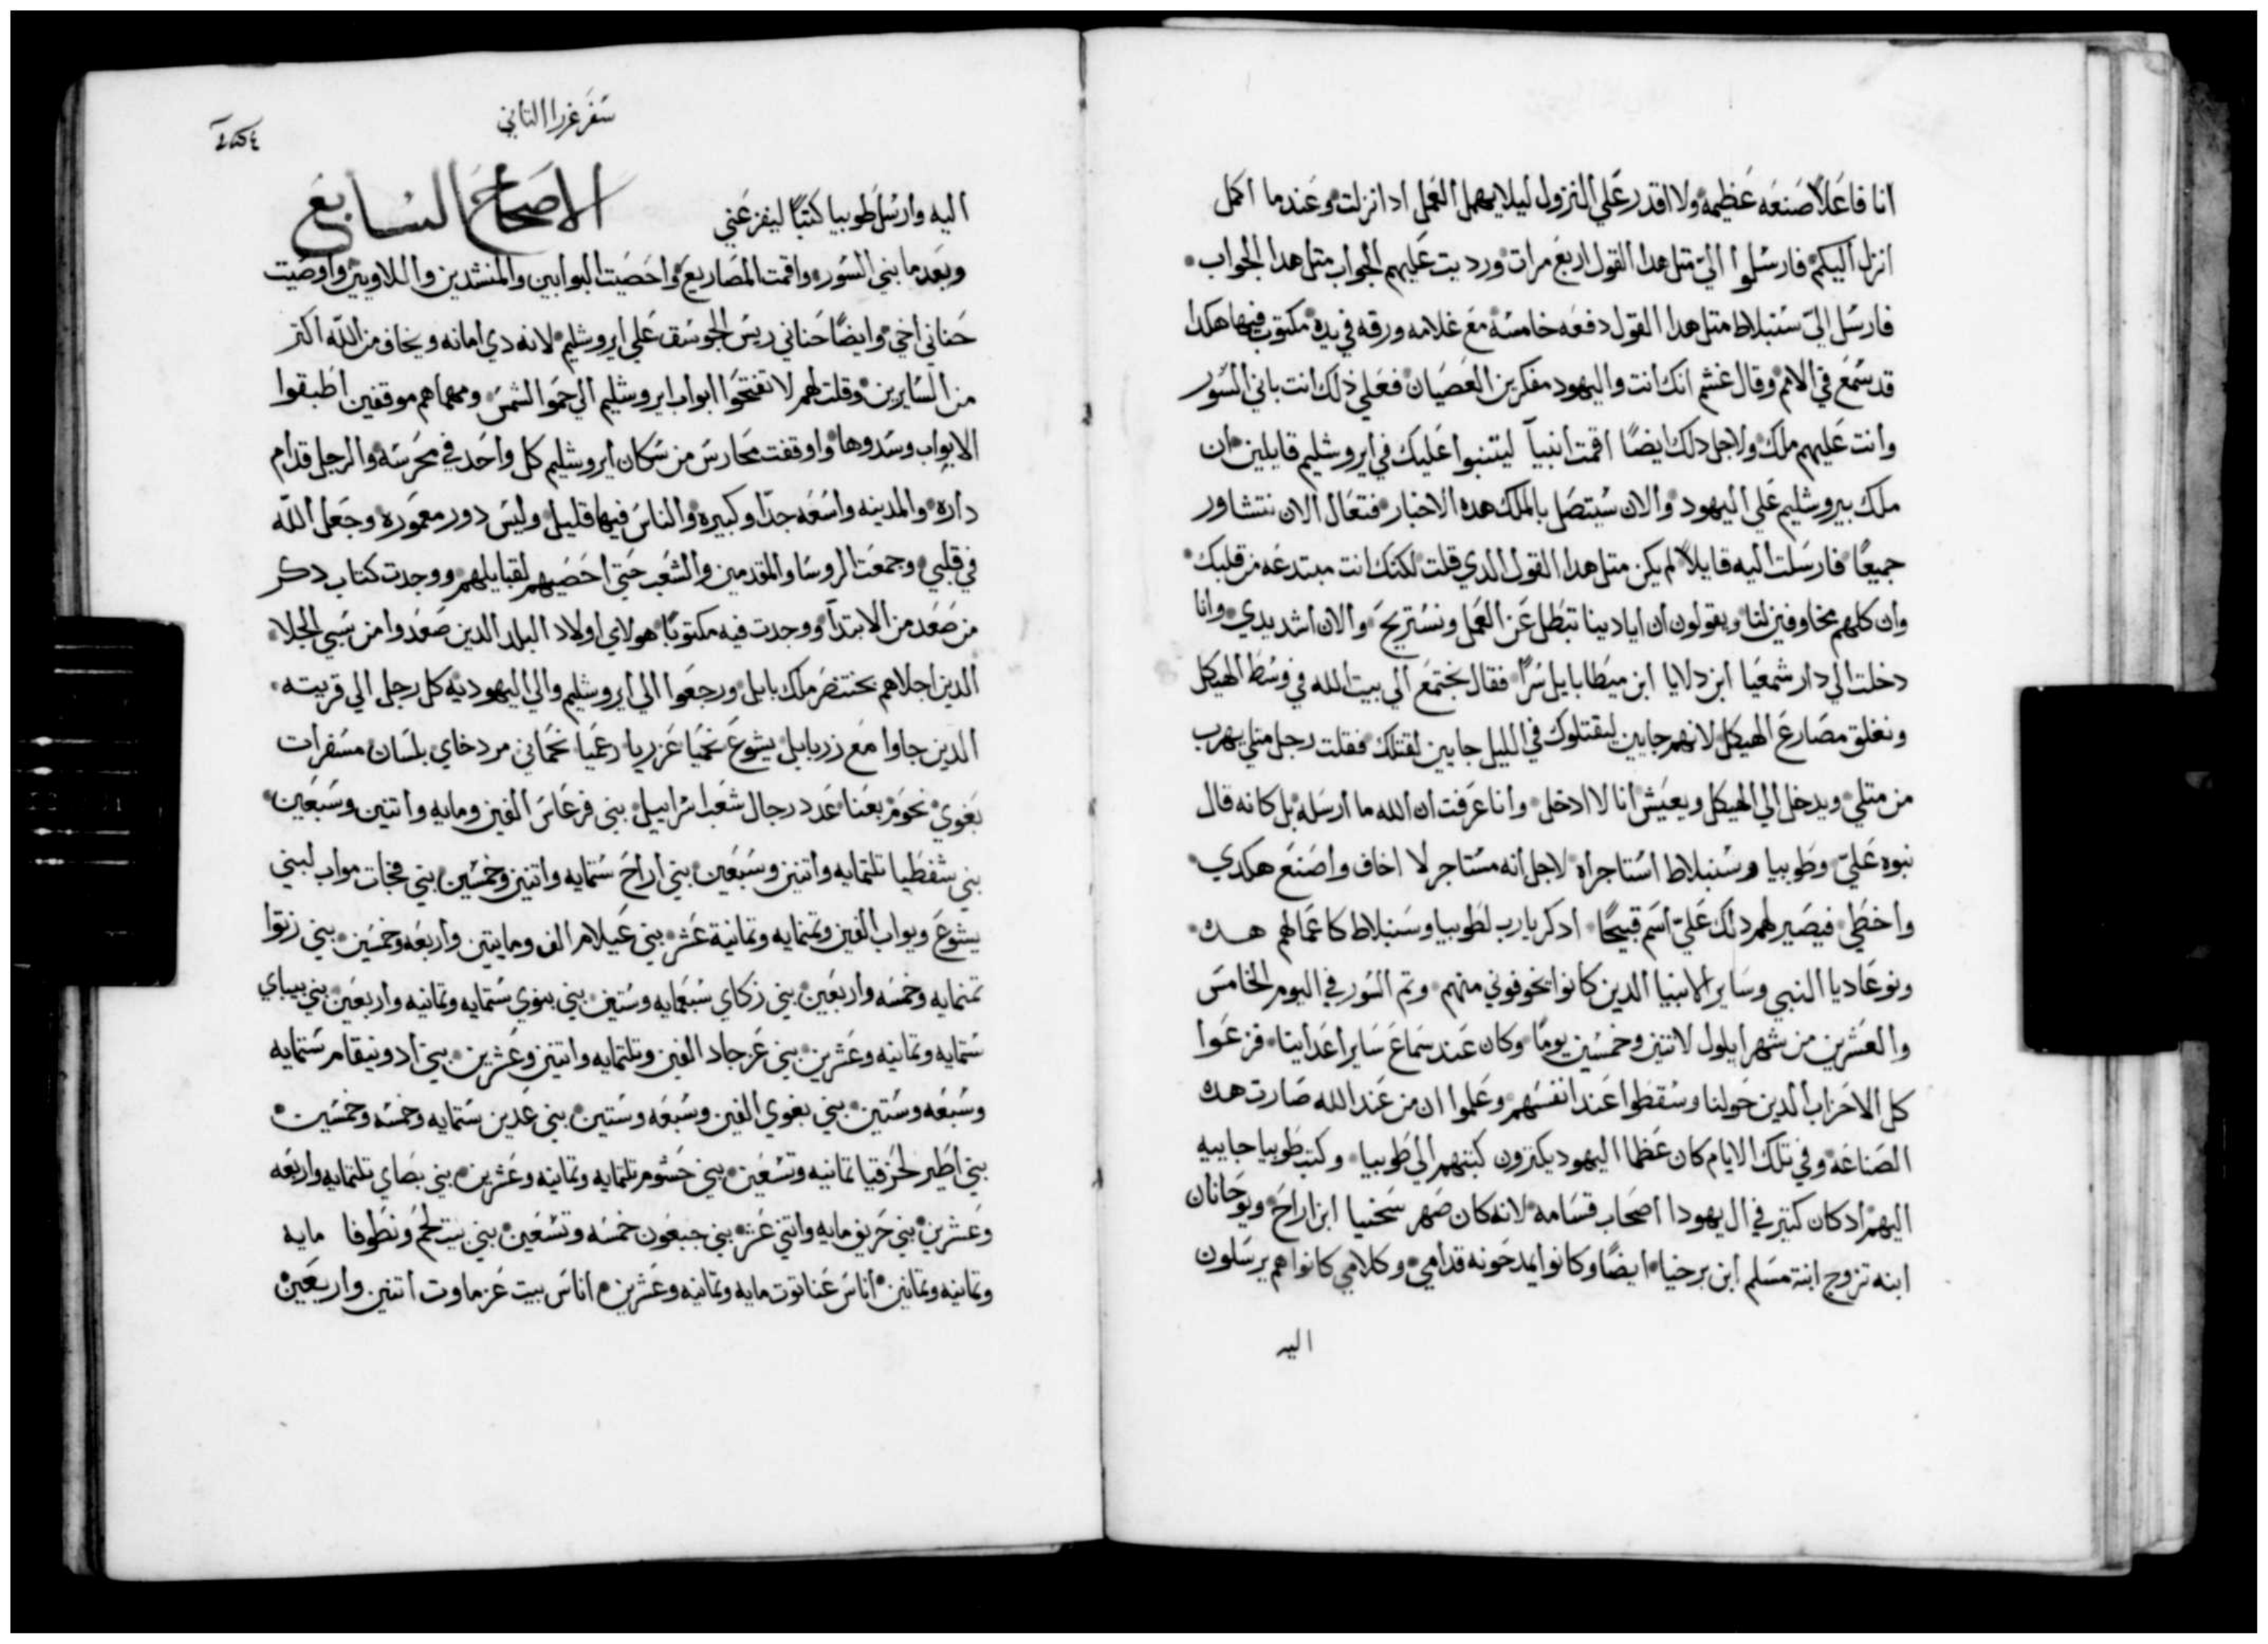 انا فاعلاً صنعه عظيمه ولا اقدر علي النزول ليلا يهمل العمل ادا نزلت وعندما اكمل
انزل اليكم فارسلوا اليّ متل هدا القول اربع مرات ورديت عليهم الجواب متل هدا الجواب
فارسل اليّ سنبلاط متل هدا القول دفعه خامسة مع غلامه ورقه في يده مكتوب فيها هكدا
قد سمع في الامم وقال غشم انك انت واليهود مفكرين العصيان فعلي ذلك انت باني السور
وانت عليهم ملك ولاجل دلك ايضًا اقمت انبيآ ليتنبوا عليك في ايروشليم قايلين ان
ملك بيروشليم علي اليهود والان سيتصل بالملك هده الاخبار فتعال الان نتشاور
جميعًا فارسلت اليه قايلاً لم يكن متل هدا القول الدي قلت لكنك انت مبتدعه من قلبك
وان كلهم مخاوفين لنا ويقولون ان ايادينا تبطل عن العمل ونستريح والان اشد يدي وانا
دخلت الي دار شمعيا ابن دلايا ابن ميطابايل سرًا فقال نجتمع الي بيت الله في وسط الهيكل
ونغلق مصارع الهيكل لانهم جايين ليقتلوك في الليل جايين لقتلك فقلت رجل متلي يهرب
من متلي ويدخل الي الهيكل ويعيش انا لا ادخل وانا عرفت ان الله ما ارسله بل كانه قال
نبوه عليّ وطوبيا وسنبلاط استاجراه لاجل انه مستاجر لا اخاف واصنع هكدي
واخطي فيصير لهم دلك عليّ اسم قبيحًا ادكر يارب لطوبيا وسنبلاط كاعمالهم هده
ونوعاديا النبي وساير الانبيا الدين كانوا يخوفوني منهم وتم السور في اليوم الخامس
والعشرين من شهر ايلول لاتنين وخمسين يومًا وكان عند سماع ساير اعداينا فزعوا
كل الاحزاب الدين حولنا وسقطوا عند انفسهم وعلموا ان من عند الله صارت هده
الصناعه وفي تلك الايام كان عظما اليهود يكترون كتبهم الي طوبيا وكتب طوبيا جاييه
اليهم اد كان كتير في ال يهودا اصحاب قسامه لانه كان صهر سخنيا ابن اراح ويوحانان
ابنه تزوج ابنة مسلم ابن برخيا ايضًا وكانوا يمدحونه قدامي وكلامي كانوا هم يرسلون
اليه
سفر عزرا التاني
اليه وارسل طوبيا كتبًا ليفزعني الاصحاح السابع
وبعد ما بني السور واقمت المصاريع واحصيت البوابين والمنشدين واللاويين واوصيت
حناني اخي وايضًا حناني ريس الجوسق علي ايروشليم لانه دي امانه ويخاف من الله اكتر
من السايرين وقلت لهم لا تفتحوا ابواب ايروشليم الي حمو الشمس ومهما هم موقفين اطبقوا
الابواب وسدوها واوقفت محارس من سكان ايروشليم كل واحد في محرسة والرجل قدام
داره والمدينه واسعه جدّا وكبيره والناس فيها قليل وليس دور معموره وجعل الله
في قلبي وجمعت الروسا والمقدمين والشعب حتي احصيهم لقبايلهم ووجدت كتاب دكر
من صعد من الابتدآ ووجدت فيه مكتوبًا هولاي اولاد البلد الدين صعدوا من سبي الجلا
الدين اجلاهم بختنصر ملك بابل ورجعوا الي ايروشليم والي اليهوديه كل رجل الي قريته
الدين جاوا مع زربابل يشوع نحميا عزريا دعميا نحماني مردخاي بلسان مسفرات
بغوي نحوم بعنا عدد رجال شعب اسراييل بني فرعاس الفين ومايه واتنين وسبعين
بني شفطيا تلتمايه واتنين وسبعين بني اراح ستمايه واتنين وخمسين بني فحات مواب لبني
يشوع ويواب الفين وتمنمايه وتمانية عشر بني عيلام الف ومايتين واربعه وخمسين بني زتوا
تمنمايه وخمسه واربعين بني زكاي سبعمايه وستين بني بنوي ستمايه وتمانيه واربعين بني بيباي
ستمايه وتمانيه وعشرين بني عزجاد الفين وتلتمايه واتنين وعشرين بني ادونيقام ستمايه
وسبعه وستين بني بغوي الفين وسبعه وستين بني عدين ستمايه وخمسه وخمسين
بني اطير لحزقيا تمانيه وتسعين بني حشوم تلتمايه وتمانيه وعشرين بني بصاي تلتمايه واربعه
وعشرين بني حريف مايه واتني عشر بني جبعون خمسه وتسعين بني بيت لحم ونطوفا مايه
وتمانيه وتمانين اناس عناتوت مايه وتمانيه وعشرين اناس بيت عزماوت اتنين واربعين